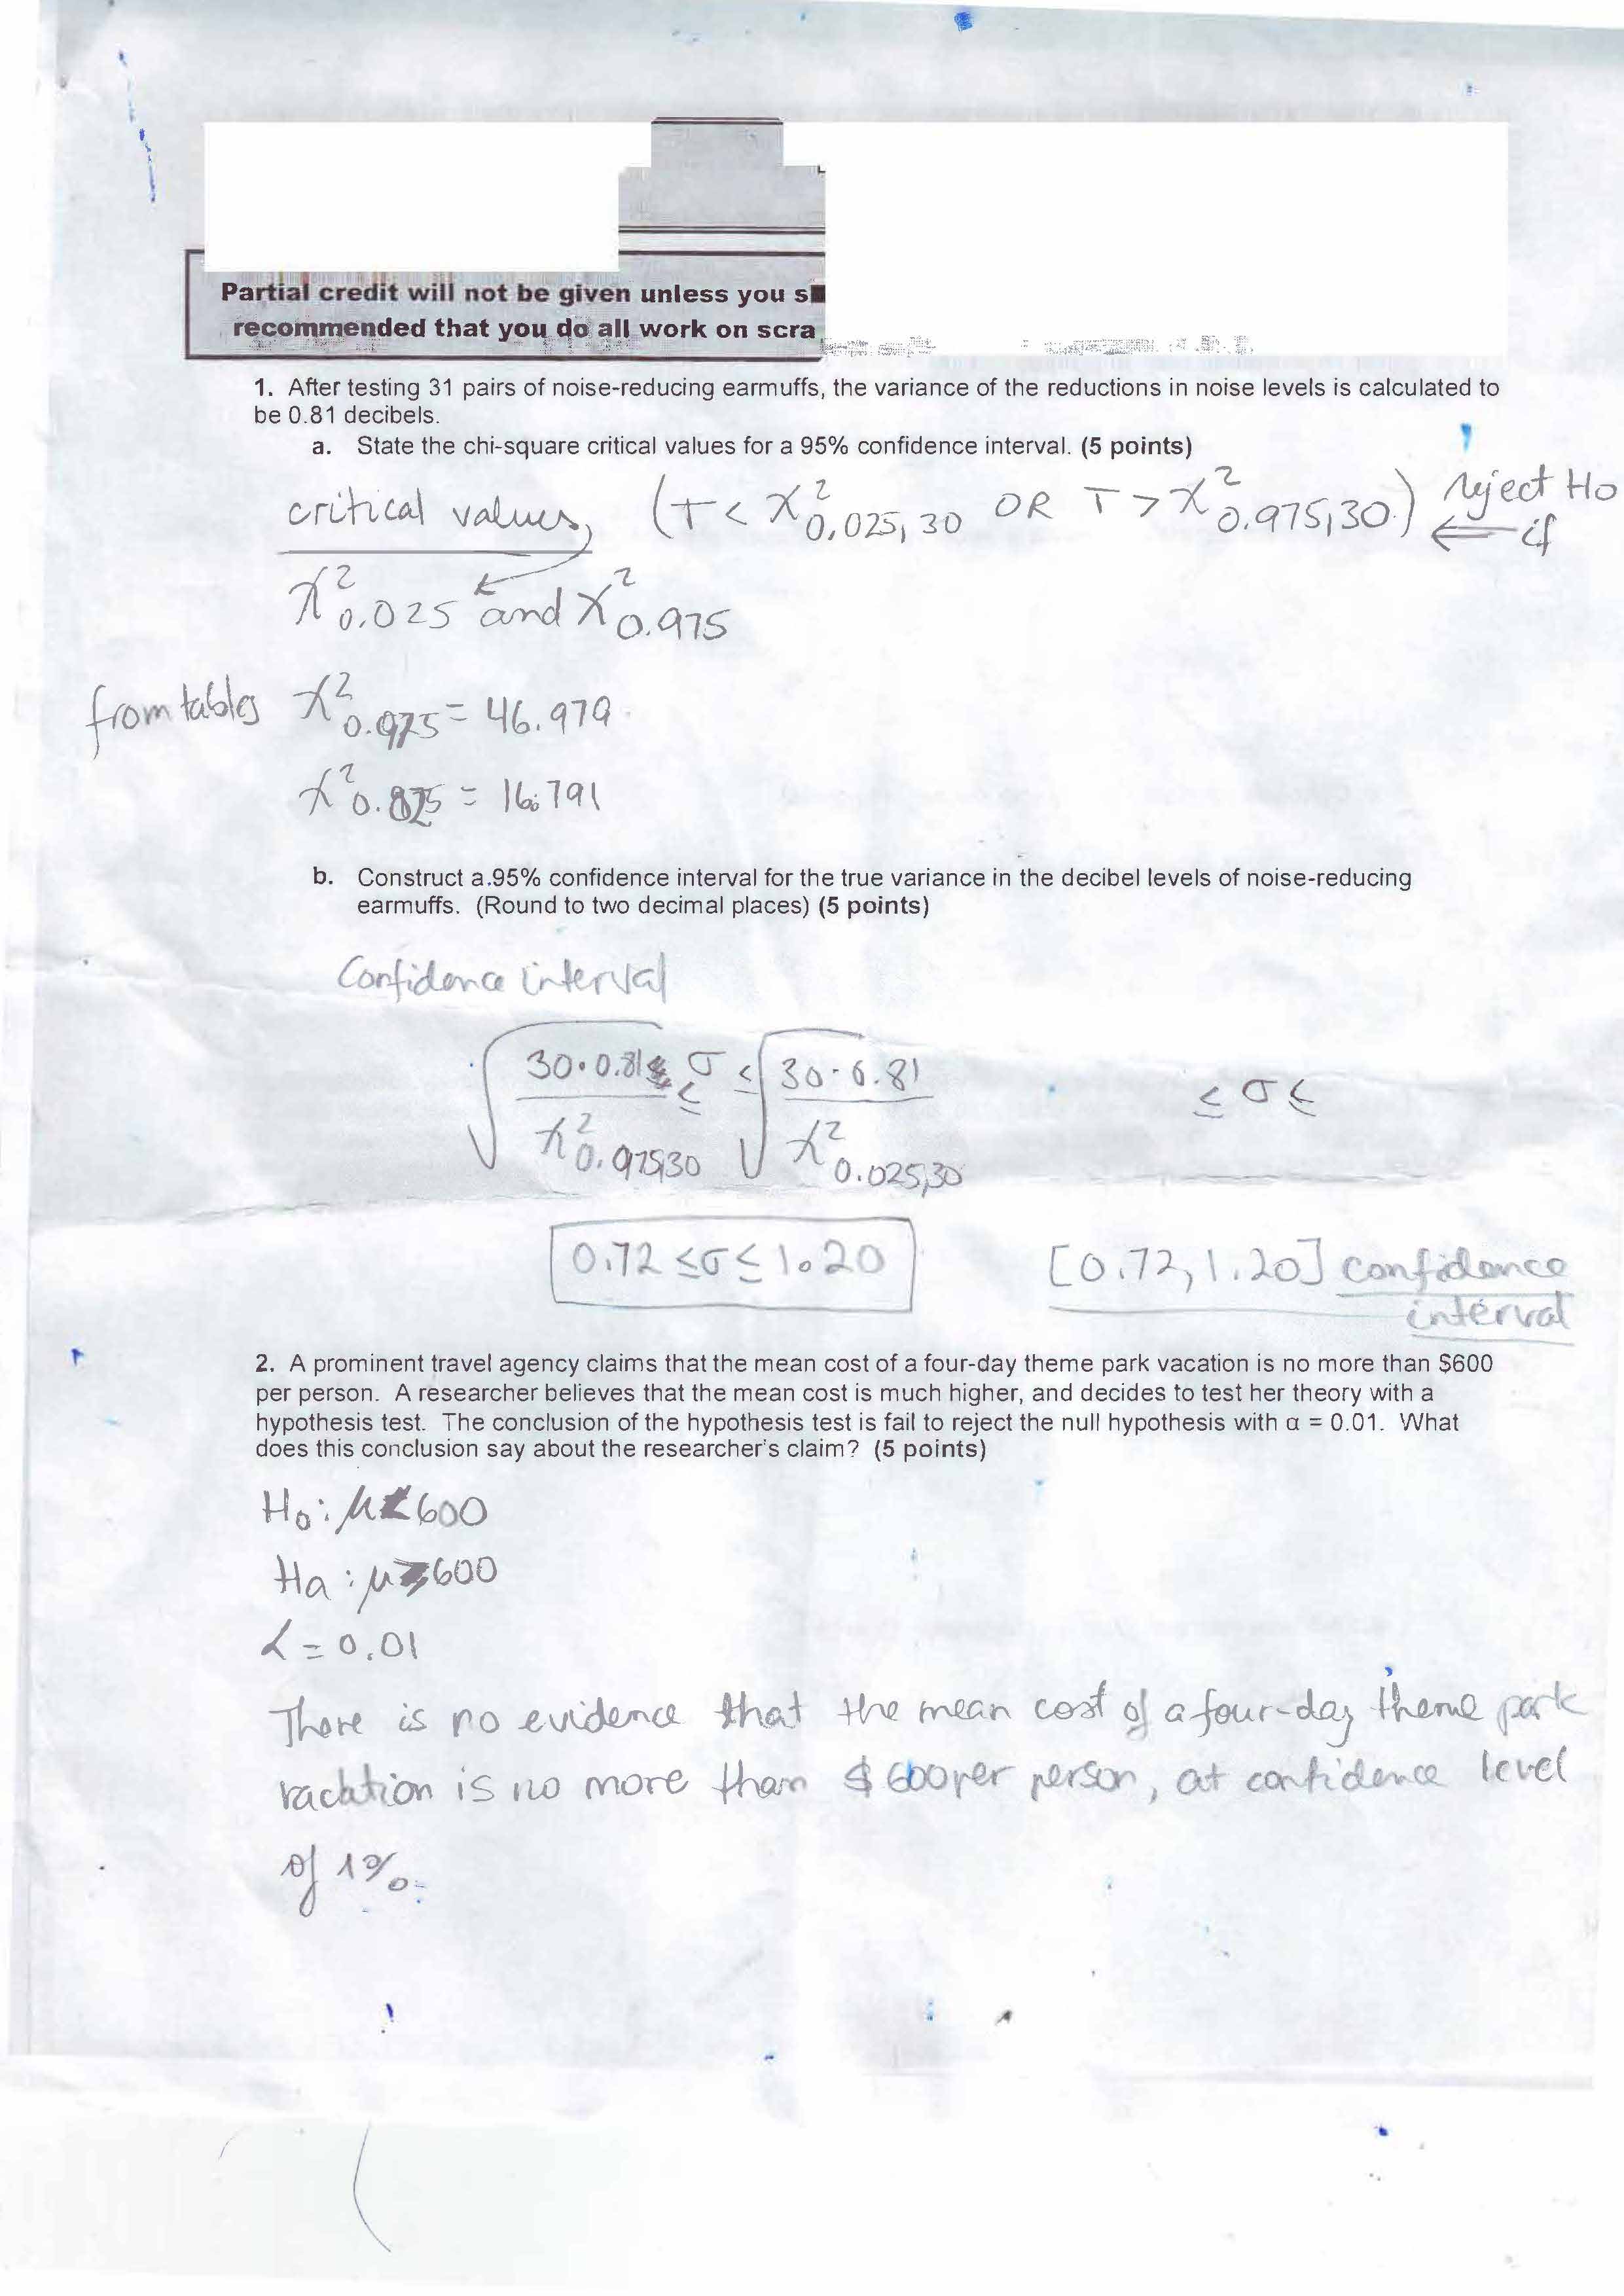 Partial credit will not be given unless you s
recommended that you do all work on scra
1. After testing 31 pairs of noise-reducing earmuffs, the variance of the reductions in noise levels is calculated to
be 0.81 decibels.
a. State the chi-square critical values for a 95% confidence interval. (5 points)
critical values, (T < χ²0,025, 30 OR T > χ²0.975,30) reject Ho
⟸ if
χ²0.025 and χ²0.975
from tables χ²0.975 = 46.979
χ²0.825 = 16.791
b. Construct a.95% confidence interval for the true variance in the decibel levels of noise-reducing
earmuffs. (Round to two decimal places) (5 points)
Confidence interval
√(30·0.81 / χ²0.975,30) ≤ σ ≤ √(30·0.81 / χ²0.025,30) ≤ σ ≤
0.72 ≤ σ ≤ 1.20 [0.72, 1.20] confidence
interval
2. A prominent travel agency claims that the mean cost of a four-day theme park vacation is no more than $600
per person. A researcher believes that the mean cost is much higher, and decides to test her theory with a
hypothesis test. The conclusion of the hypothesis test is fail to reject the null hypothesis with α = 0.01. What
does this conclusion say about the researcher's claim? (5 points)
Ho: μ 600
Ha: μ 600
α = 0.01
There is no evidence that the mean cost of a four-day theme park
vacation is no more than $600 per person, at confidence level
of 1%.